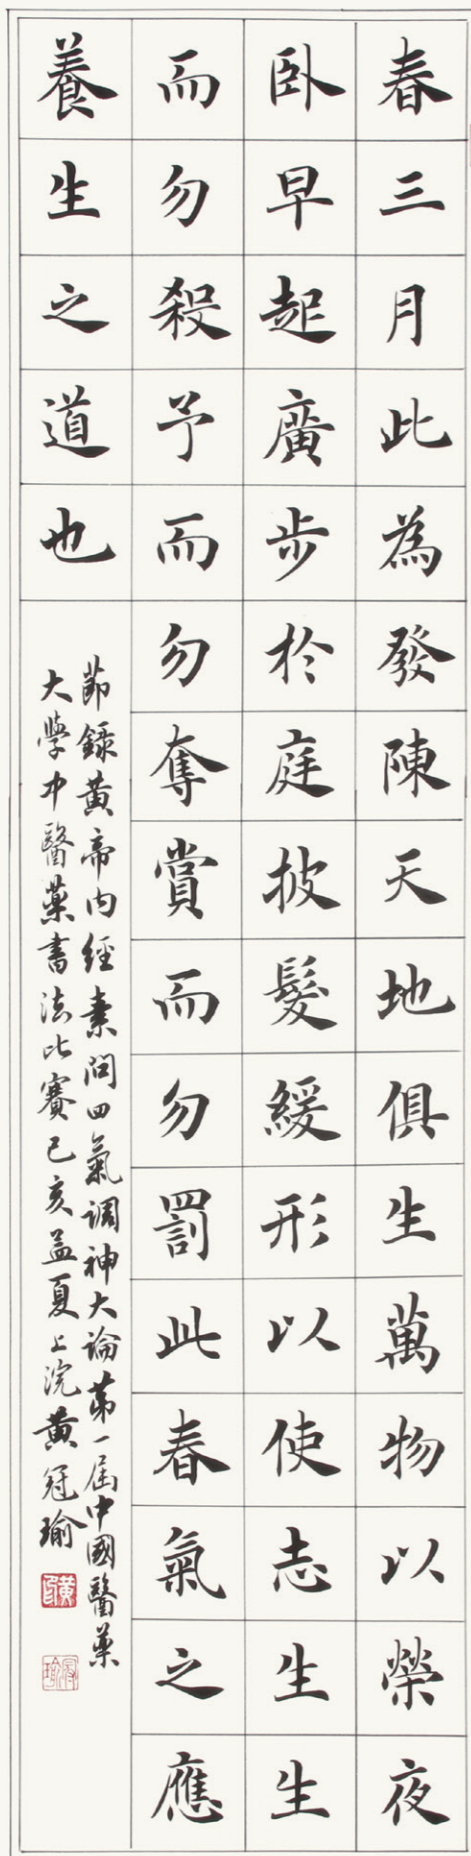 春三月此為發陳天地俱生萬物以榮夜
卧早起廣步於庭披髮緩形以使志生生
而勿殺予而勿奪賞而勿罰此春氣之應
養生之道也
節録黄帝内經素問四氣调神大论第一届中國醫藥
大學中醫藥書法比賽己亥孟夏上浣黄冠瑜